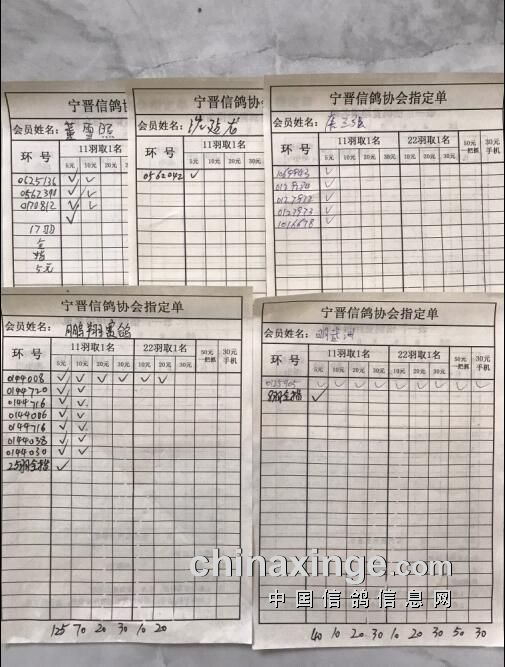 宁晋信鸽协
会员姓名：董雪照
环 号 11羽取1名
5元 10元 20元 30元
0625136 ✓ ✓
0562390 ✓ ✓
0170812 ✓ ✓
✓
17羽
全
指
5元
宁晋信鸽协会
会员姓名：
环 号 11羽取1名
5元 10元 20元
0562042 ✓
宁晋信鸽协会指定单
会员姓名：
环 号 11羽取1名 22羽取1名 50元一把抓 30元手机
5元 10元 20元 30元 5元 10元 20元 30元
✓
✓
✓
0127973 ✓
1016678 ✓
宁晋信鸽协会指定单
会员姓名：鹏翔赛鸽
环 号 11羽取1名 22羽取1名 50元一把抓 30元手机
5元 10元 20元 30元 5元 10元 20元 30元
0144008 ✓ ✓ ✓ ✓ ✓ ✓
0144720 ✓ ✓
0144716 ✓ ✓
0144006 ✓ ✓
0144716 ✓ ✓
0144038 ✓ ✓
0144030 ✓ ✓
25羽全指 ✓
125 70 20 30 10 20
宁晋信鸽协会指定单
会员姓名：
环 号 11羽取1名 22羽取1名 50元一把抓 30元手机
5元 10元 20元 30元 5元 10元 20元 30元
0125405 ✓ ✓ ✓ ✓ ✓ ✓ ✓ ✓ ✓ ✓
8羽全指 ✓
40 10 20 30 10 20 30 50 30
chinaxinge.com
中国信鸽信息网